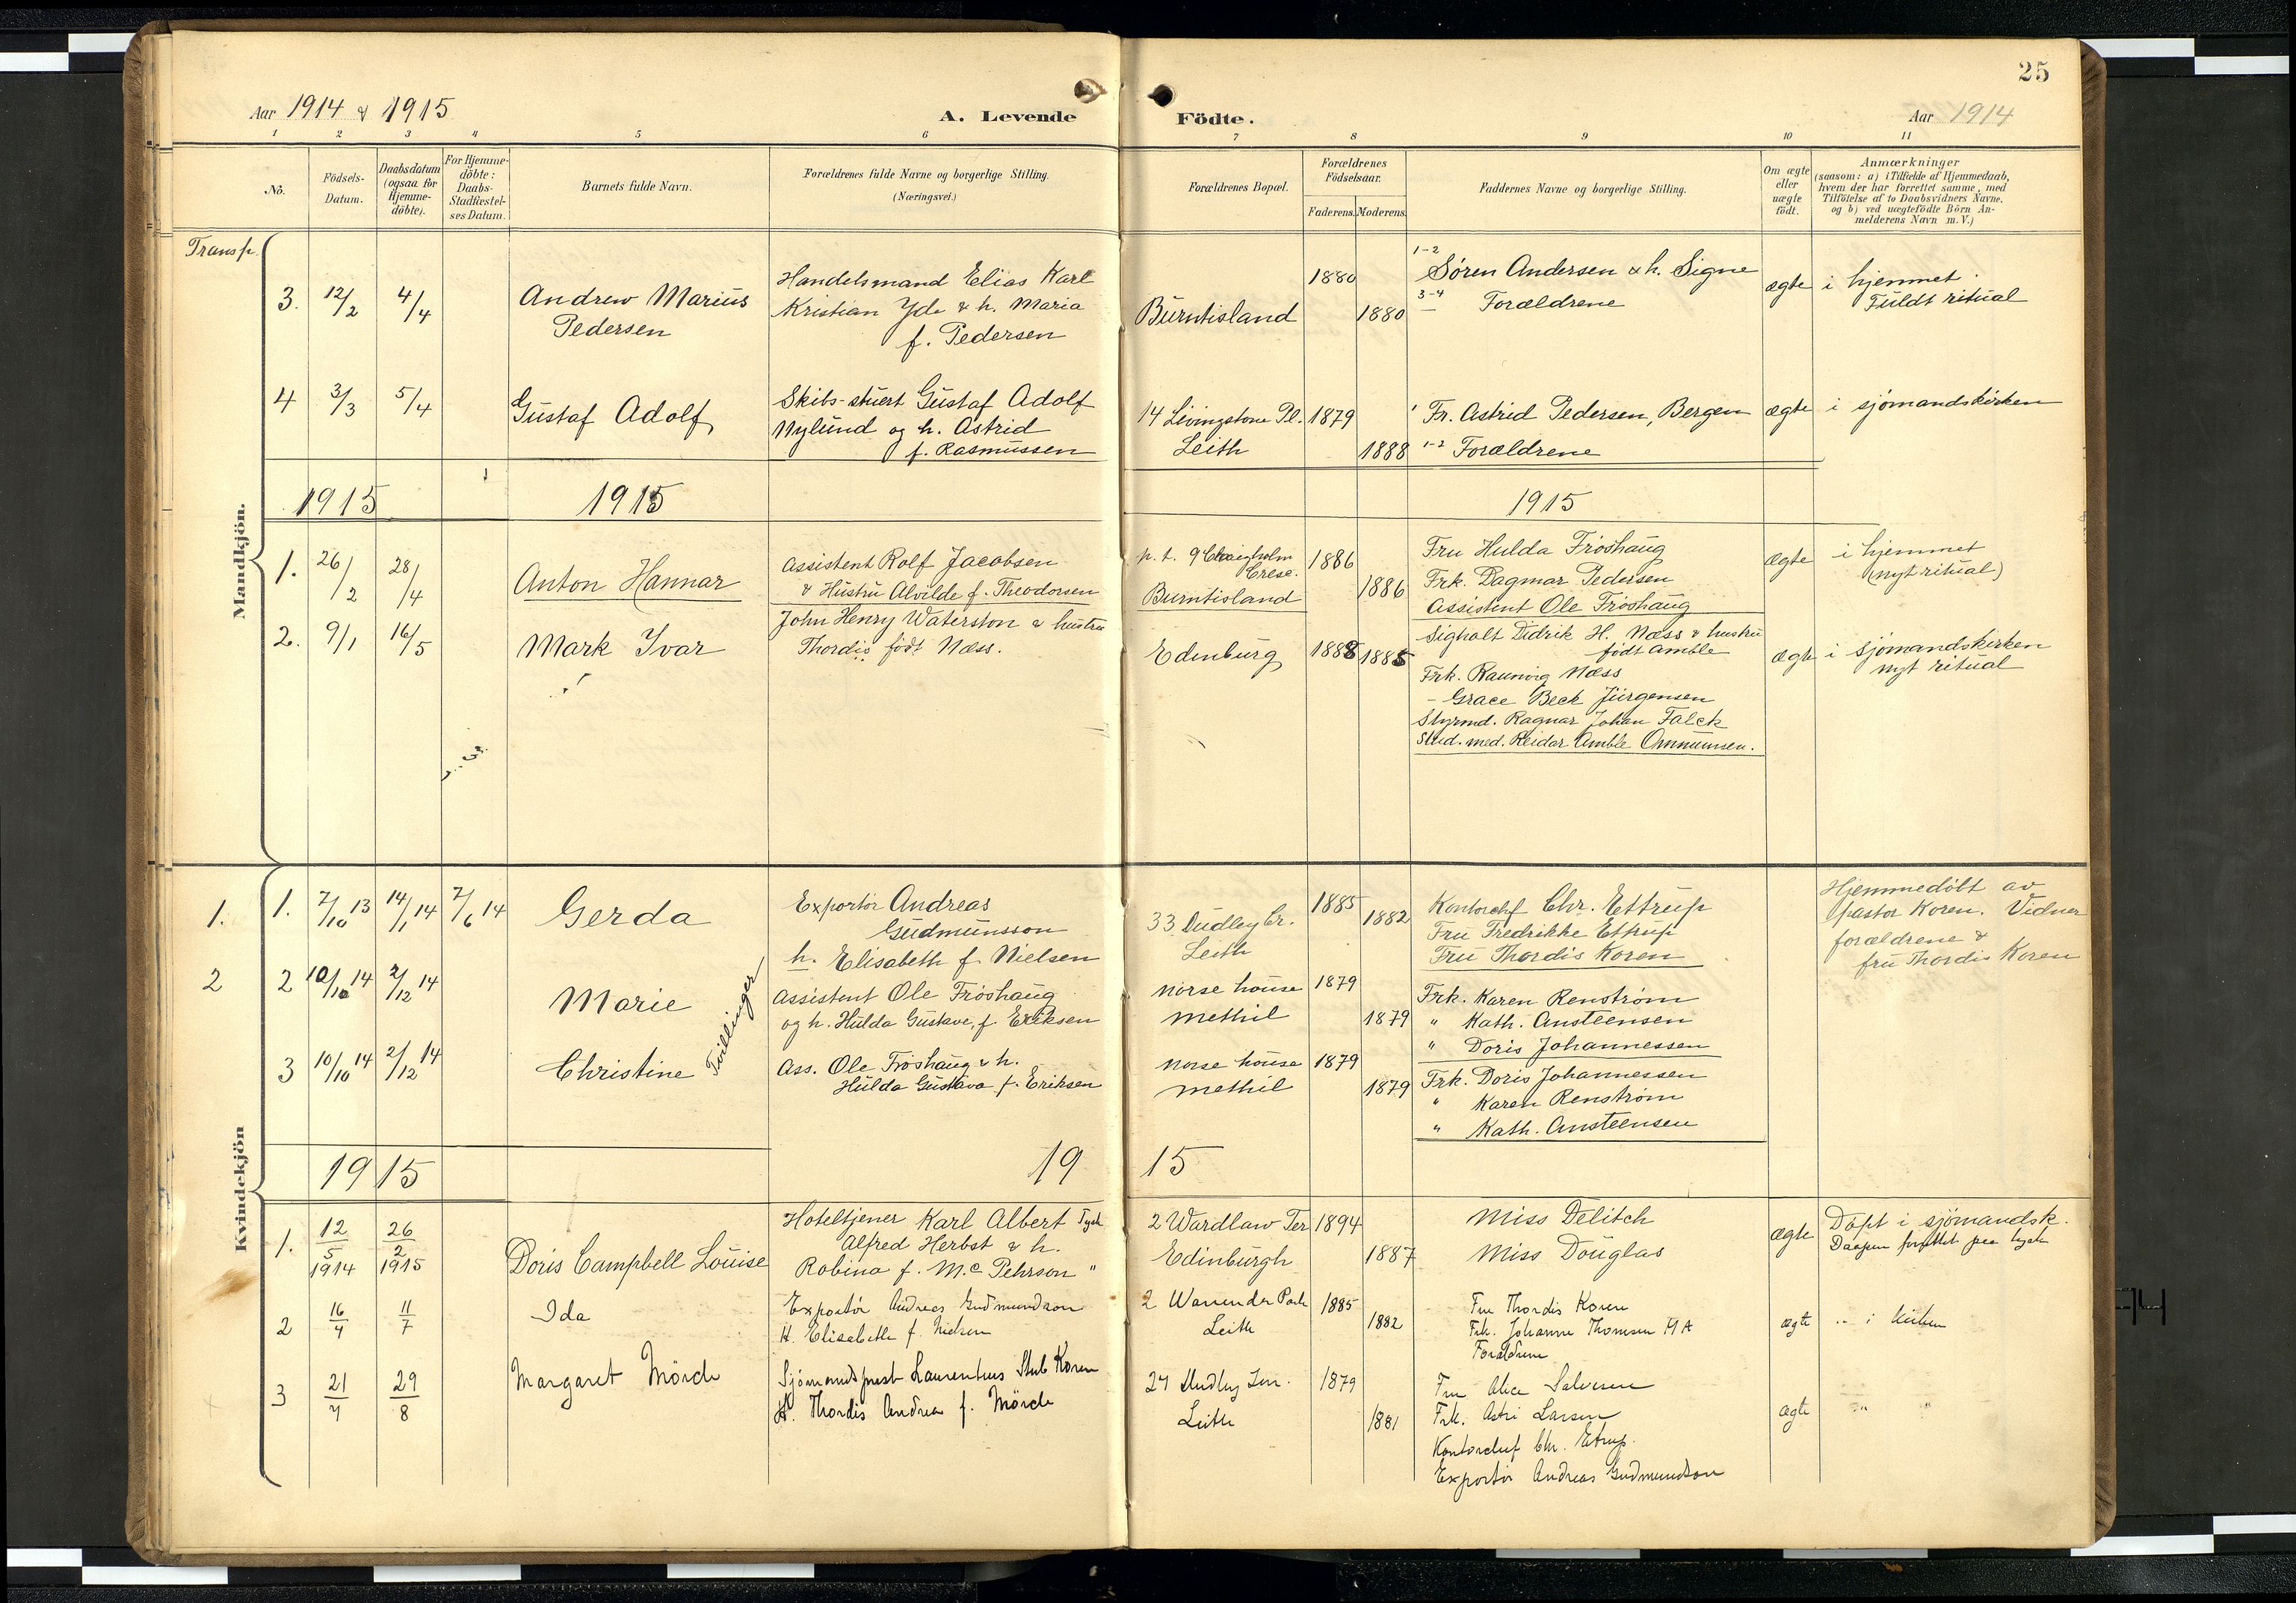 25
Aar 1914 & 1915
A. Levende Födte.
Aar 1914
1 2 3 4 5 6 7 8 9 10 11
No.
Födsels-Datum.
Daabsdatum (ogsaa for Hjemme-döbte).
For Hjemme-döbte: Daabs-Stadfæstel-ses Datum.
Barnets fulde Navn.
Forældrenes fulde Navne og borgerlige Stilling. (Næringsvei.)
Forældrenes Bopæl.
Forældrenes Födselsaar.
Faderens. Moderens.
Faddernes Navne og borgerlige Stilling.
Om ægte eller uægte födt.
Anmærkninger
(saasom: a) i Tilfælde af Hjemmedaab,
hvem der har forrettet samme, med
Tilföielse af to Daabsvidners Navne,
og b) ved uægtefödte Börn An-
melderens Navn m.V.)
Transp.
Mandkjön.
3. 12/2 4/4
Andrew Marius
Pedersen
Handelsmand Elias Karl
Kristian Yde & h. Maria
f. Pedersen
Burntisland
1880
1880
1-2
Søren Andersen & h. Signe
3-4
Forældrene
ægte
i hjemmet
Fuldt ritual
4 3/3 5/4
Gustaf Adolf
Skibs-stuert Gustaf Adolf
Nylund og h. Astrid
f. Rasmussen
14 Livingstone Pl.
Leith
1879
1888
Fr. Astrid Pedersen, Bergen
1-2 Forældrene
ægte
i sjömandskirken
1915
1915
1915
1. 26/2 28/4
Anton Hannar
Assistent Rolf Jacobsen
& Hustru Alvilde f. Theodorsen
p. t. 9 Craigholm
Cresc.
Burntisland
1886
1886
Fru Hulda Fröshaug
Frk. Dagmar Pedersen
Assistent Ole Fröshaug
ægte
i hjemmet
(nyt ritual)
2. 9/1 16/5
Mark Ivar
John Henry Waterston & hustru
Thordis födt Næss.
Edinburg
1888
1885
Sigvalt Didrik H. Næss & hustru
födt Amble
Frk. Raunvig Næss
- Grace Beck Jürgensen
Styrmd. Ragnar Johan Falck
Stud. med. Reidar Amble Ommunsen.
ægte
i sjömandskirken
nyt ritual
Kvindekjön
1. 1. 7/10 13 14/1 14 7/6 14
Gerda
Exportör Andreas
Gudmunsson
h. Elisabeth f. Nielsen
33 Dudley Cr.
Leith
1885
1882
Kontorchf Chr. Ettrup
Fru Fredrikke Ettrup
Fru Thordis Koren
Hjemmedöbt av
pastor Koren. Vidner
forældrene &
fru Thordis Koren
2 2 10/10 14 2/12 14
Marie
Tvillinger
Assistent Ole Fröshaug
og h. Hulda Gustave, f. Eriksen
norse house
methil
1879
1879
Frk. Karen Renström
" Kath. Ansteensen
" Doris Johannessen
3 10/10 14 2/12 14
Christine
Ass. Ole Fröshaug & h.
Hulda Gustava f. Eriksen
norse house
methil
1879
1879
Frk. Doris Johannessen
" Karen Renström
" Kath. Ansteensen
1915
1915
1. 12/5 1914 26/2 1915
Doris Campbell Louise
Hoteltjener Karl Albert Tysk
Alfred Herbst & h.
Robina f. Mc Pehrson "
2 Wardlaw Ter
Edinburgh
1894
1887
Miss Delitch
Miss Douglas
ægte
Döpt i sjömandsk.
Daapen forrettet paa tysk
2 16/4 11/7
Ida
Exportör Andreas Gudmundson
H. Elisabeth f. Nielsen
2 Warrender Park
Leith
1885
1882
Fru Thordis Koren
Frk. Johanne Thomsen MA
Forældrene
ægte
" i kirken
3 21/7 29/8
Margaret Mörch
Sjömandsprest Laurentius Stub Koren
H. Thordis Andrea f. Mörch
27 Dudley
Leith
1879
1881
Fru Alice Salvesen
Frk. Astri Larsen
Kontorchef Chr. Etrup.
Exportör Andreas Gudmundson
ægte
" "